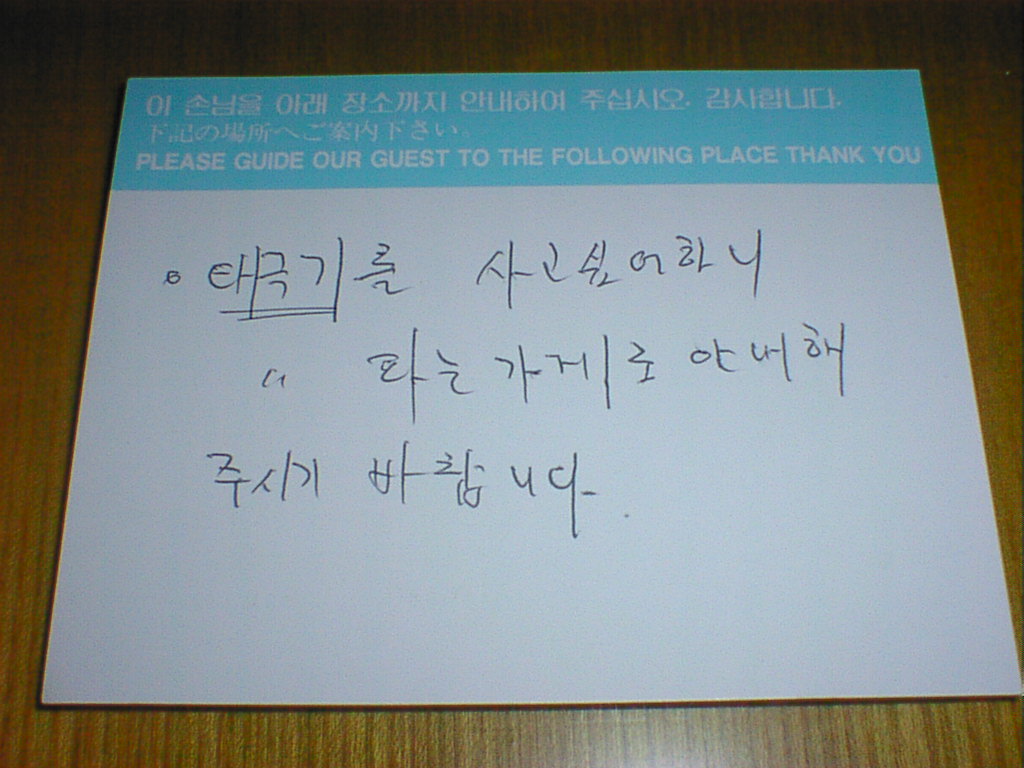 이 손님을 아래 장소까지 안내하여 주십시오. 감사합니다.
下記の場所へご案内下さい。
PLEASE GUIDE OUR GUEST TO THE FOLLOWING PLACE THANK YOU
태극기를 사고싶어하니
" 파는가게로 안내해
주시기 바랍니다.